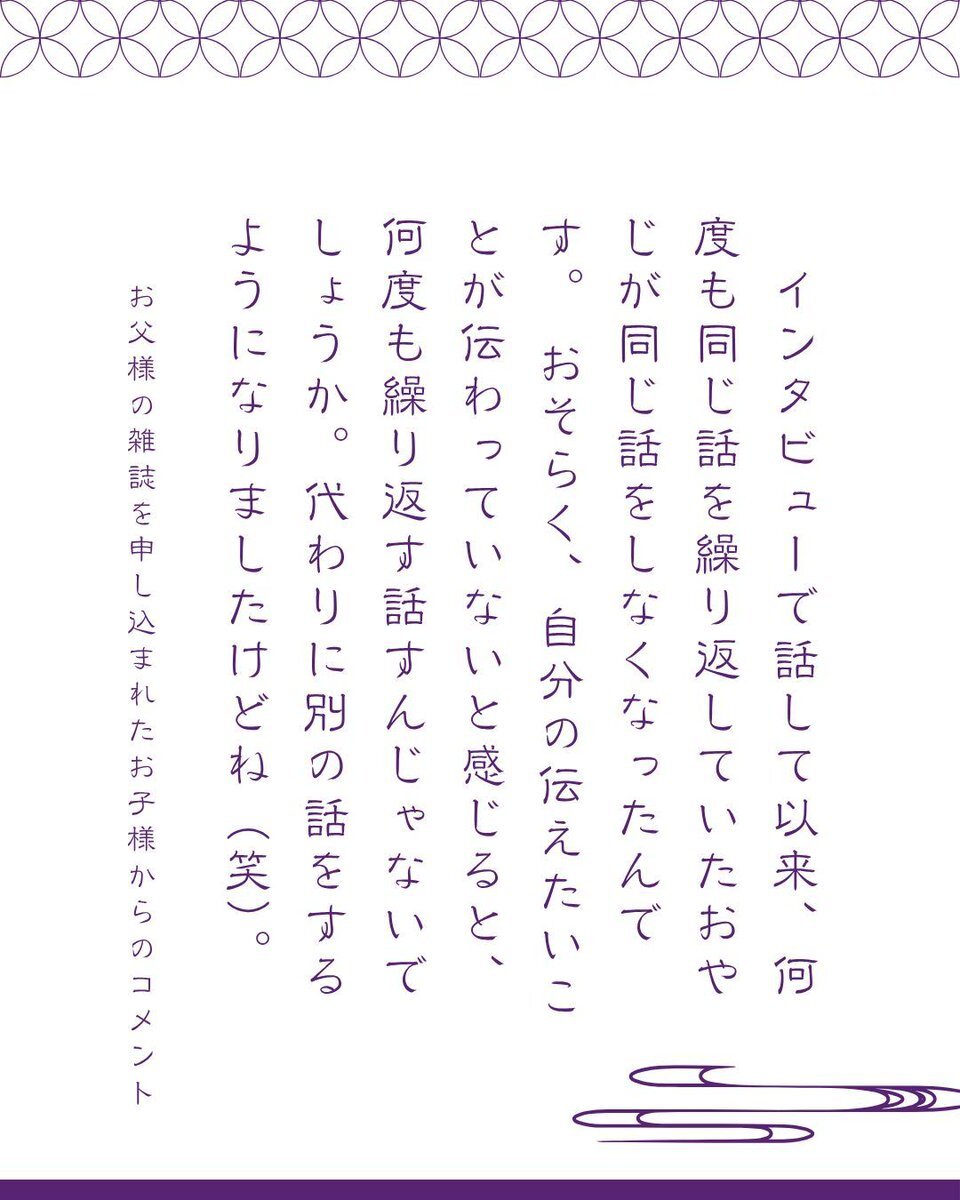 インタビューで話して以来、何
度も同じ話を繰り返していたおや
じが同じ話をしなくなったんで
す。おそらく、自分の伝えたいこ
とが伝わっていないと感じると、
何度も繰り返す話すんじゃないで
しょうか。代わりに別の話をする
ようになりましたけどね（笑）。
お父様の雑誌を申し込まれたお子様からのコメント